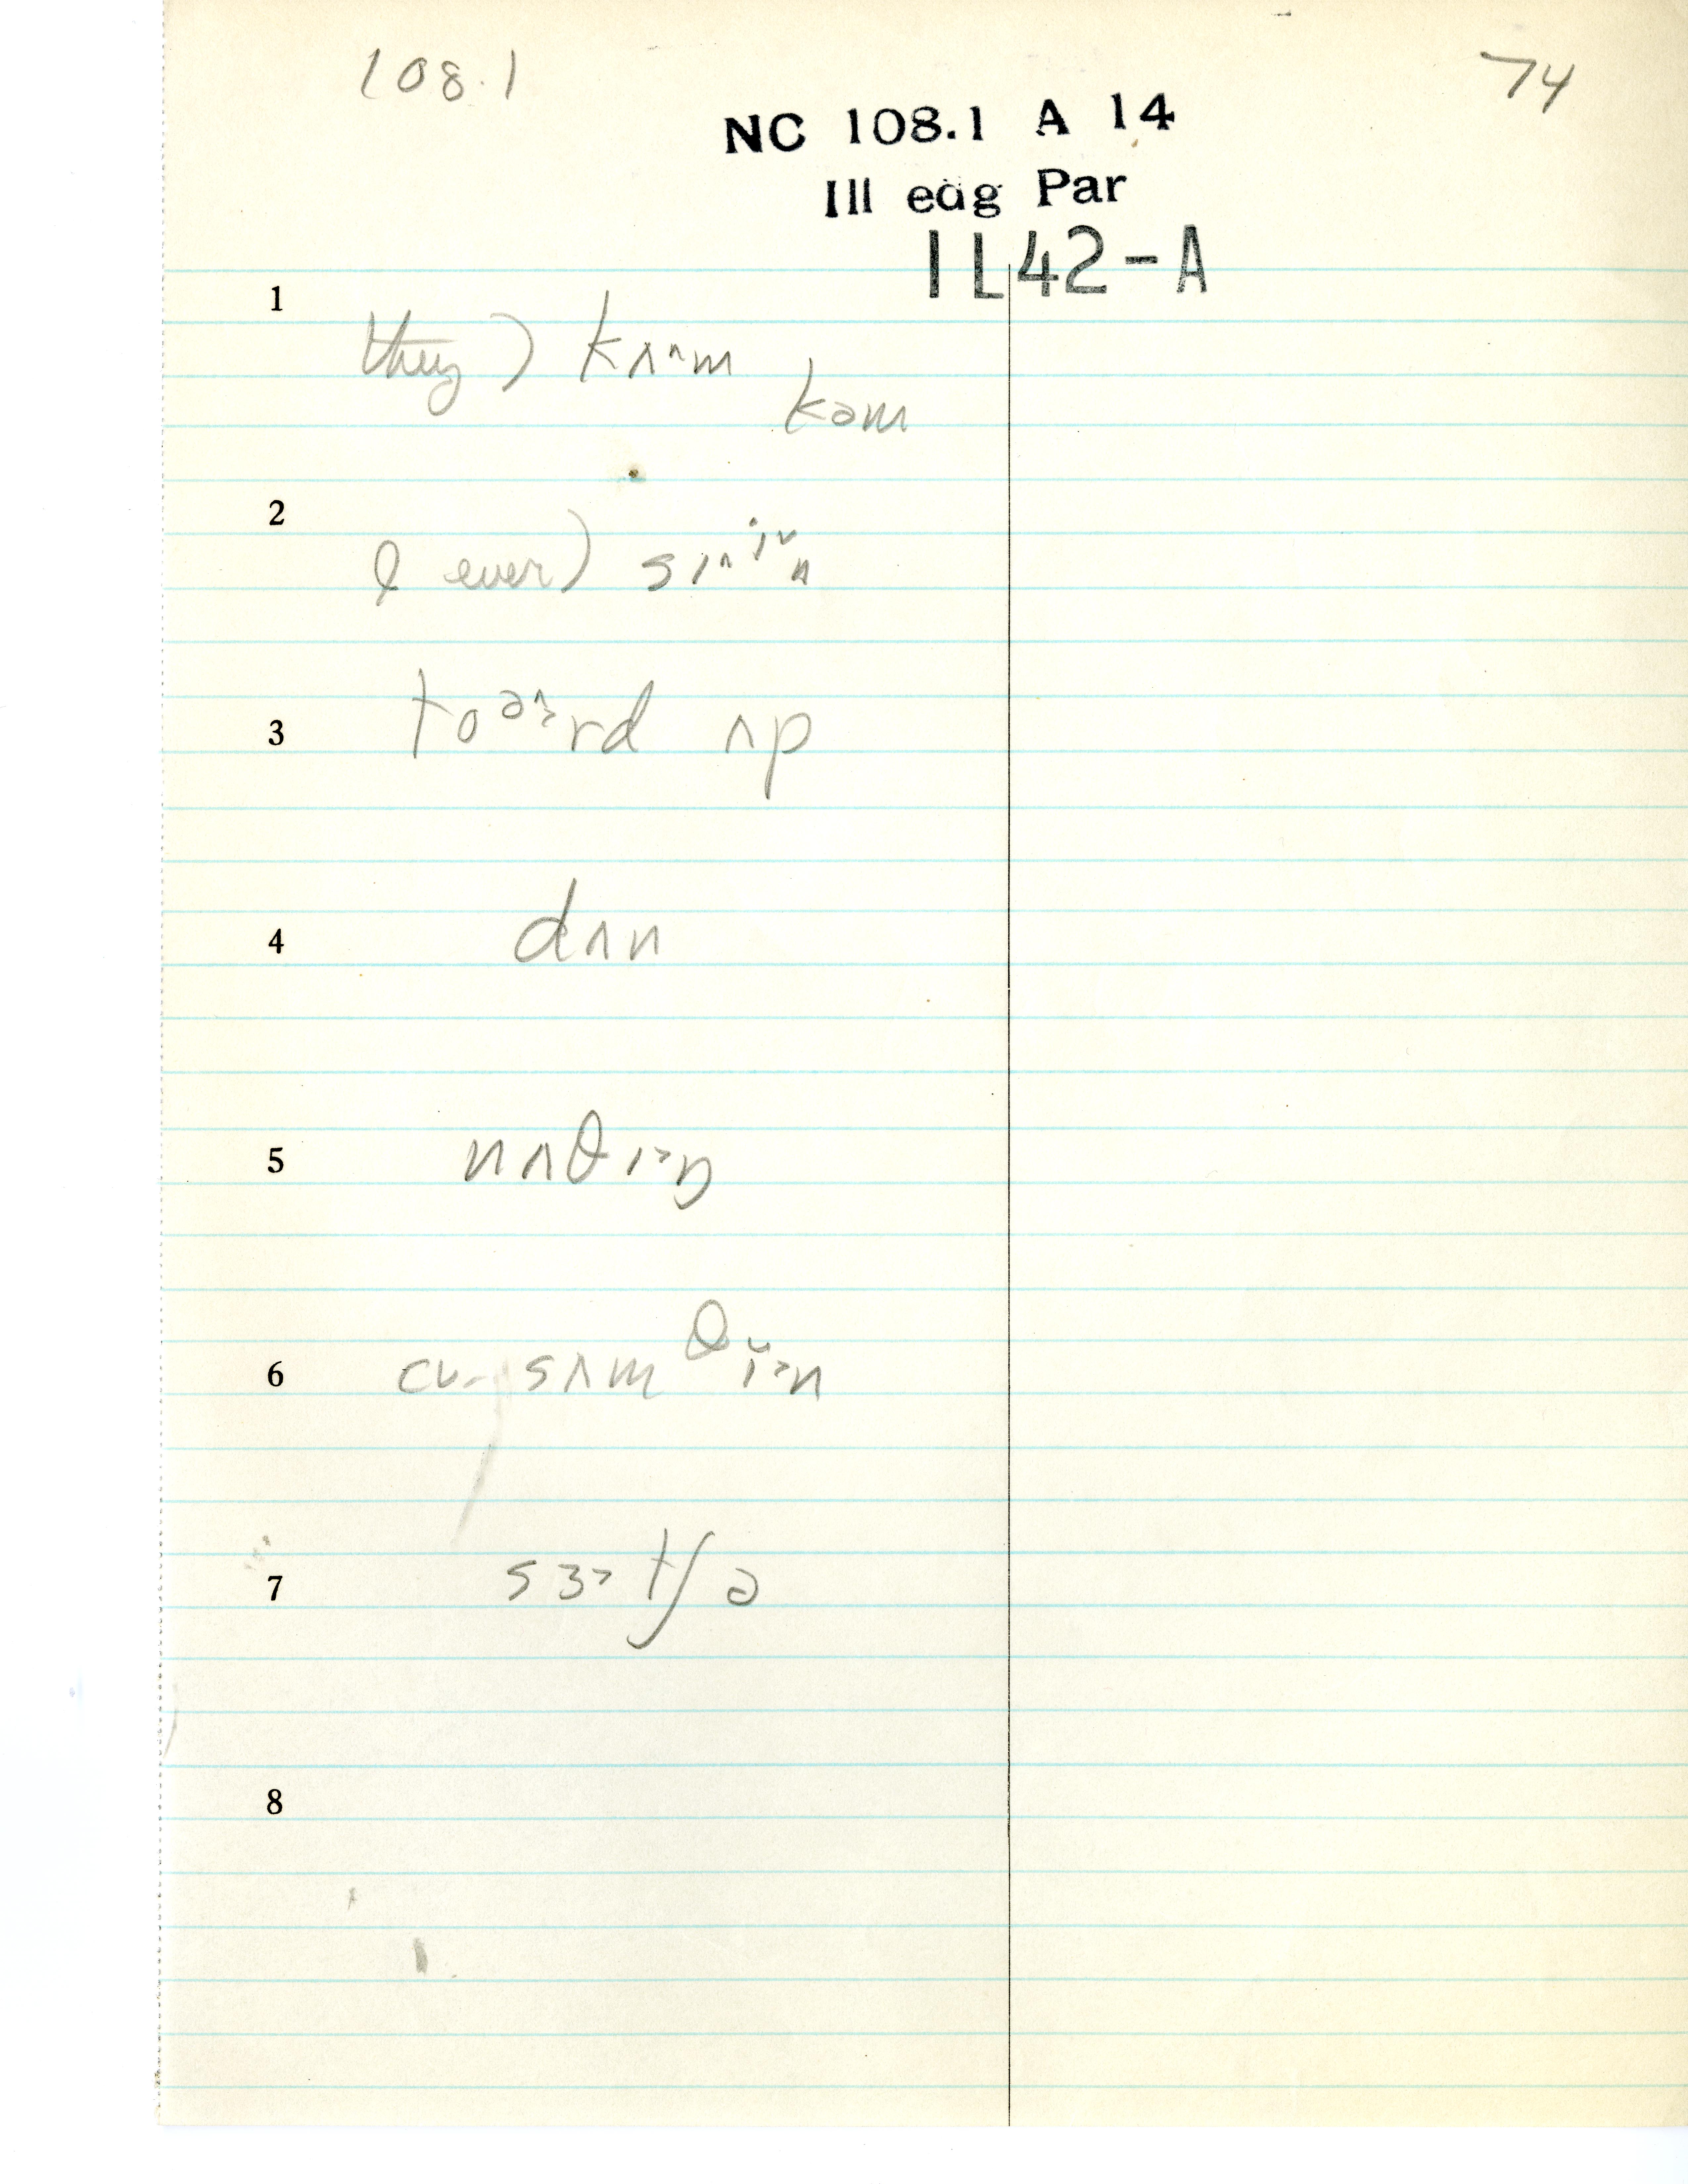 108.1 74
NC 108.1 A 14
Ill edg Par
IL42-A
1
they) kʌ^m
kəm
2
I ever) sɪ^ɪ˅n
3 toᵊ˄˃rd ʌp
4 dʌn
5 nʌθɪ˃ŋ
6 cv. sʌmθɪ̆˃n
7 sɜ˃tʃə
8